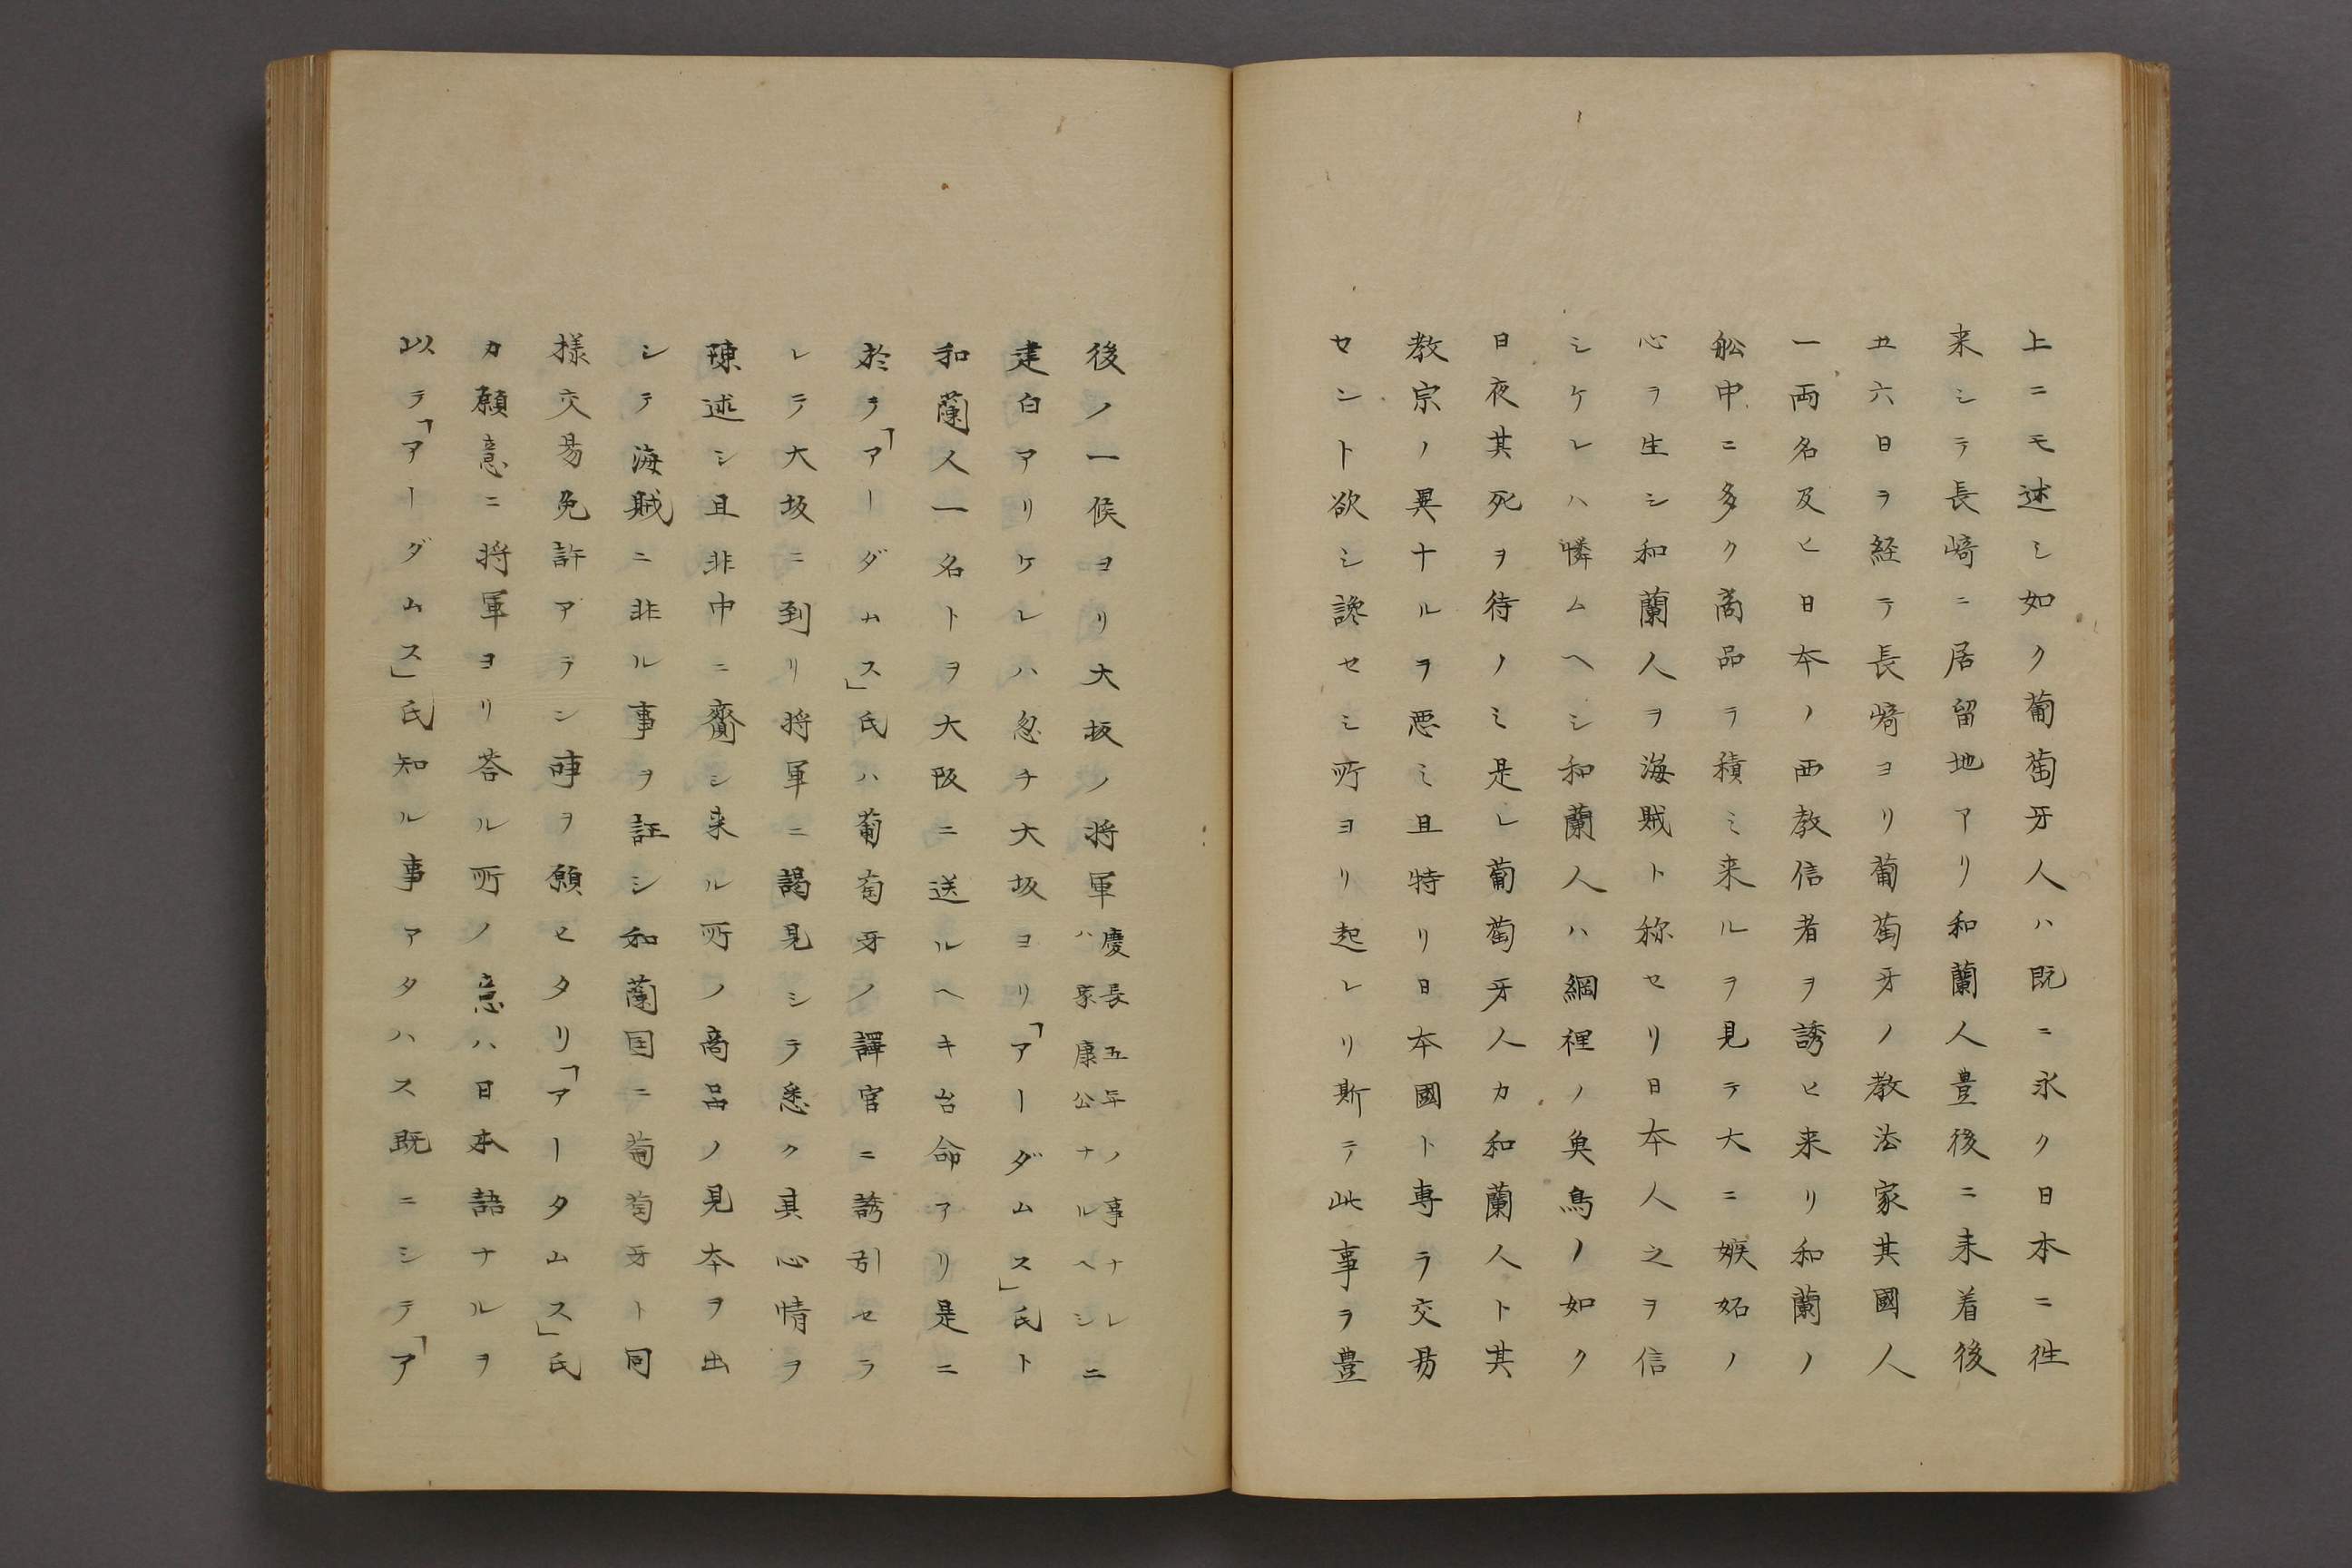 上ニモ述シ如ク葡萄牙人ハ既ニ永ク日本ニ徃
来シテ長崎ニ居留地アリ和蘭人豊後ニ来着後
五六日ヲ経テ長崎ヨリ葡萄牙ノ教法家其國人
一両名及ヒ日本ノ西教信者ヲ誘ヒ来リ和蘭ノ
舩中ニ多ク商品ヲ積ミ来ルヲ見テ大ニ嫉妬ノ
心ヲ生シ和蘭人ヲ海賊ト称セリ日本人之ヲ信
シケレハ憐ムヘシ和蘭人ハ綱裡ノ魚鳥ノ如ク
日夜其死ヲ待ノミ是レ葡萄牙人カ和蘭人ト其
教宗ノ異ナルヲ悪ミ且特リ日本國ト専ラ交易
セント欲シ讒セシ所ヨリ起レリ斯テ此事ヲ豊
後ノ一候ヨリ大坂ノ将軍慶長五年ノ事ナレハ家康公ナルヘシニ
建白アリケレハ忽チ大坂ヨリ「アーダムス」氏ト
和蘭人一名トヲ大阪ニ送ルヘキ台命アリ是ニ
於テ「アーダムス」氏ハ葡萄牙ノ譯官ニ誘引セラ
レテ大坂ニ到リ将軍ニ謁見シテ悉ク其心情ヲ
陳述シ且非中ニ齎シ来ル所ノ商品ノ見本ヲ出
シテ海賊ニ非ル事ヲ証シ和蘭国ニ葡萄牙ト同
様交易免許アラン事ヲ願ヒタリ「アータムス」氏
カ願意ニ将軍ヨリ荅ル所ノ意ハ日本語ナルヲ
以テ「アーダムス」氏知ル事アタハス既ニシテ「ア